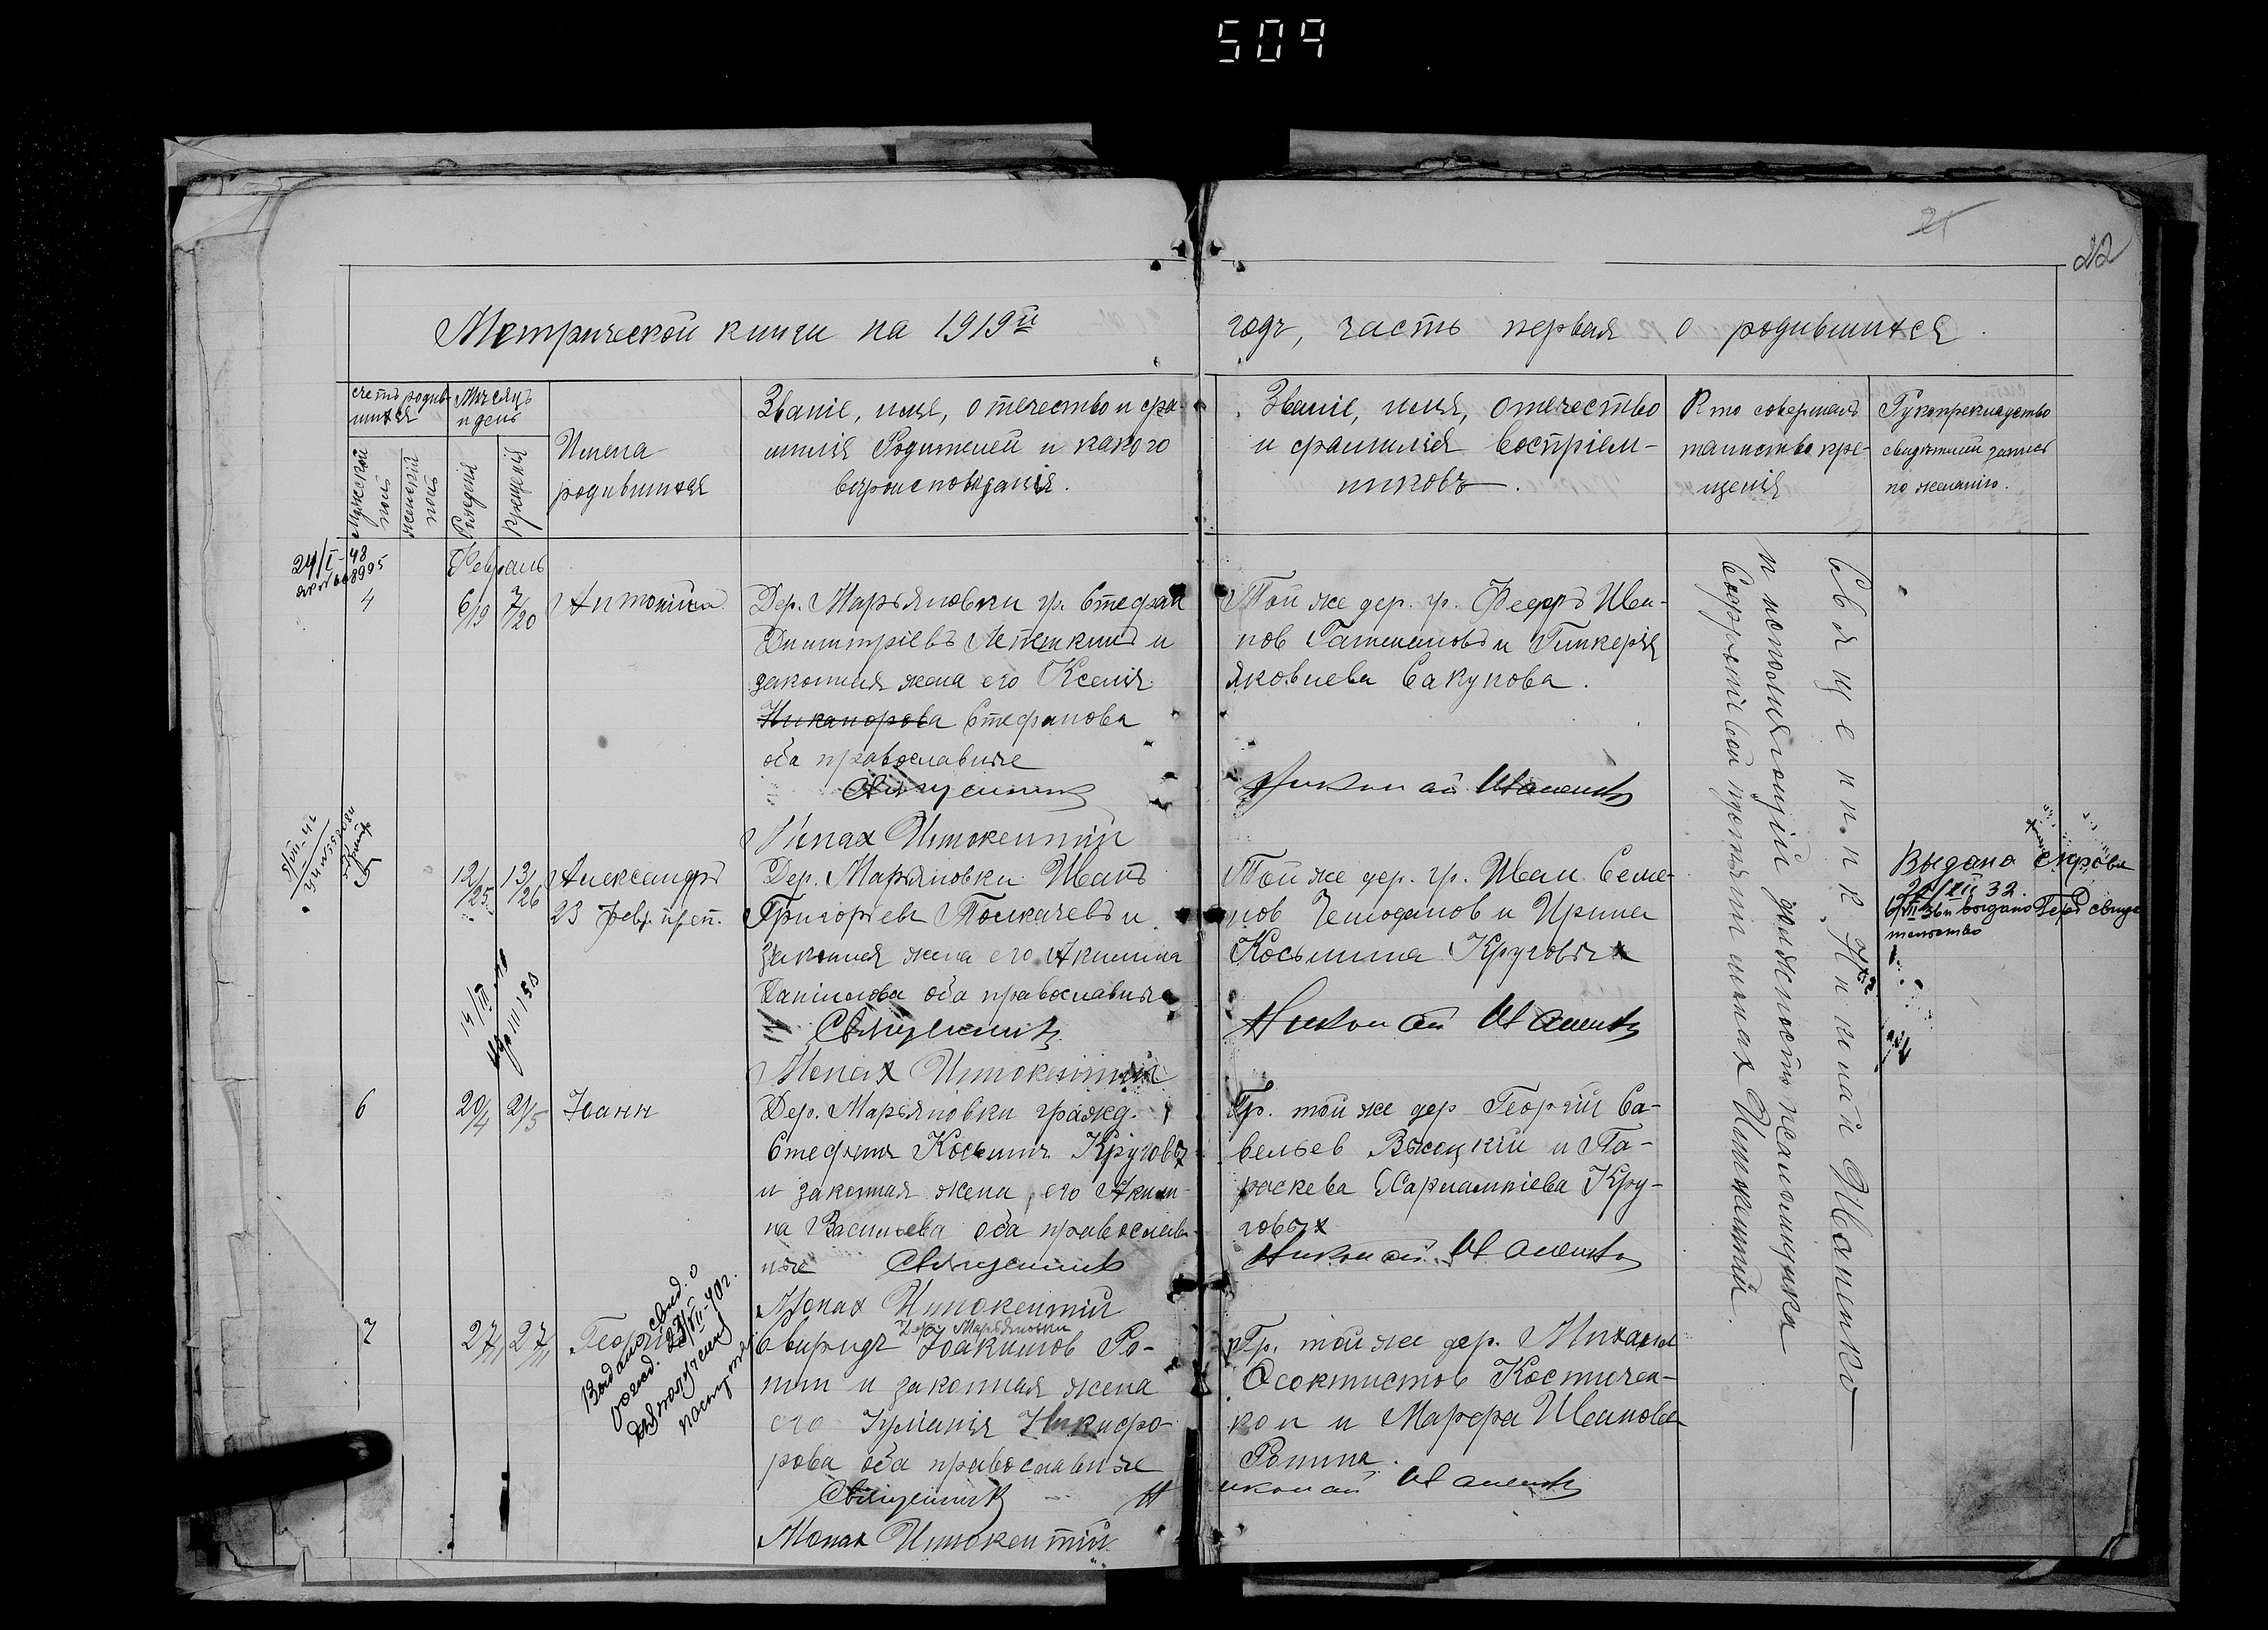 509
22
Метрической книги на 1919й
годъ, часть первая о родившихся.
Счетъ родив-
шихся
Мужской
пол
женскій
пол
Мѣсяцъ
и день
Рожденія
Крещенія
Имена
родившихся
Званіе, имя, отечество и фа-
милія Родителей и какого
вѣроисповѣданія.
Званіе, имя, отечество
и фамилія воспріем-
никовъ.
Кто совершалъ
таинство кре-
щенія
Рукоприкладство
свидѣтелей записи
по желанію.
24/I-48
Февраль
4
6/19
7/20
Дер. Марьяновки гр. Стефан
Димитріевъ Лепешкинъ и
законная жена его Ксенія
Никанорова Стефанова
оба православные
Священникъ
Монах Иннокентій
Той же дер. гр. Федоръ Ива-
нов и Гликерія
Яковлева Сакунова.
Николай Иваненко
5
12/25
13/26
Александръ
23 февр. преп.
Дер. Марьяновки Иванъ
Григорьев Толкачевъ и
Законная жена его Акилина
Даніилова оба православные
Священникъ
Монах Иннокентій
Той же дер. гр. Иван Семе-
нов Чемоданов и Ирина
Косьмина Круговых
Николай Иваненко
Выдано справка
20/XII 32.
выдано свиде
тельство
6
20/4
21/5
Іоанн
Дер. Марьяновки гражд.
Стефанъ Косьмин Круговых
и законная жена его Акили-
на Васильева оба православ-
ные Священникъ
Монах Иннокентій
Гр. той же дер Георгій Са-
вельев Высоцкій и Па-
раскева Харлампіева Кру-
говых
Николай Иваненко
7
27/11
27/11
Георгій
Выдано свид. о
рожд. 23/VII-40г.
для получения
паспорта
Дер. Марьяновки
Свиридъ Іоакимов Ро-
нин и законная жена
его Іуліанія Никифо-
рова оба православные
Священникъ Н
Монах Иннокентій
Гр. той же дер. Михаил
Феоктистов Костючен-
ков и Марфа Иванова
Ронина.
иколай Иваненко
Священник Николай Иваненко
и исполняющій должность псаломщика
монах Иннокентій.